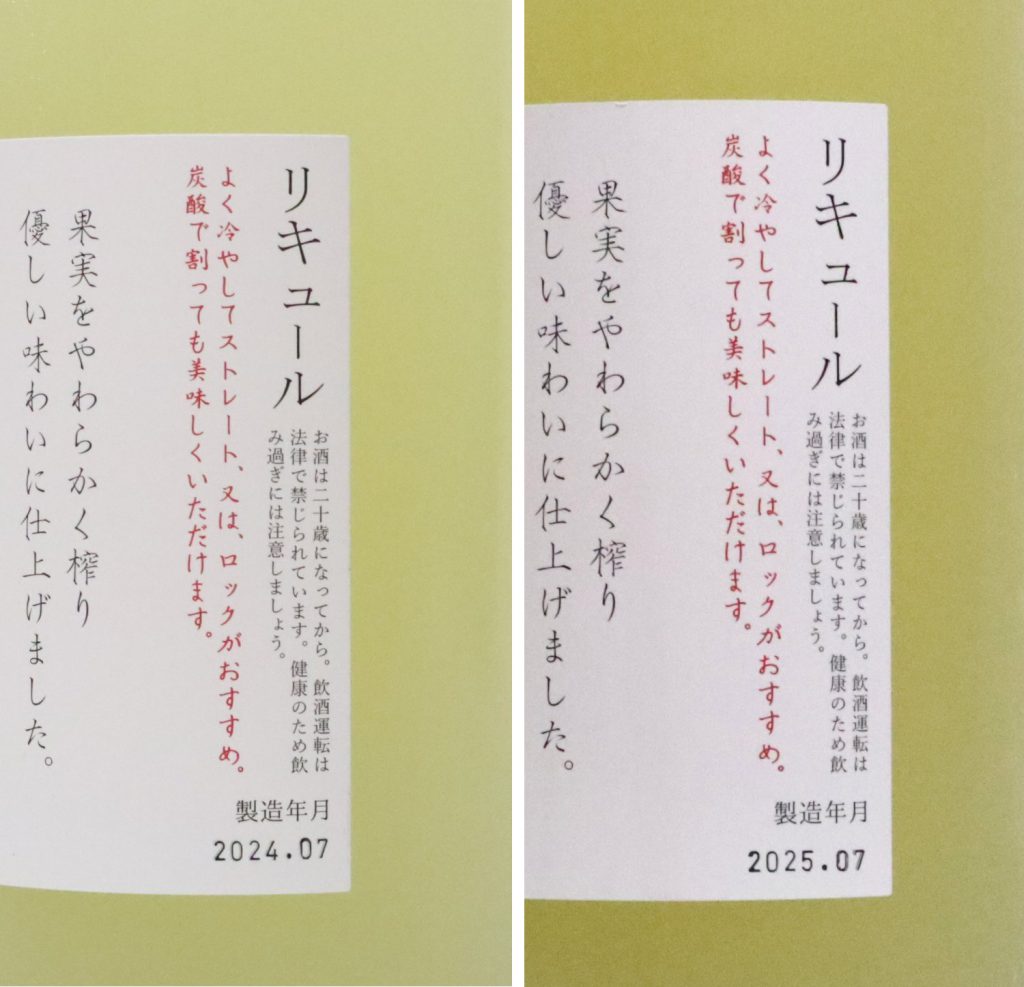 リキュール
お酒は二十歳になってから。飲酒運転は
法律で禁じられています。健康のため飲
み過ぎには注意しましょう。
よく冷やしてストレート、又は、ロックがおすすめ。
炭酸で割っても美味しくいただけます。
果実をやわらかく搾り
優しい味わいに仕上げました。
製造年月
2024.07
リキュール
お酒は二十歳になってから。飲酒運転は
法律で禁じられています。健康のため飲
み過ぎには注意しましょう。
よく冷やしてストレート、又は、ロックがおすすめ。
炭酸で割っても美味しくいただけます。
果実をやわらかく搾り
優しい味わいに仕上げました。
製造年月
2025.07